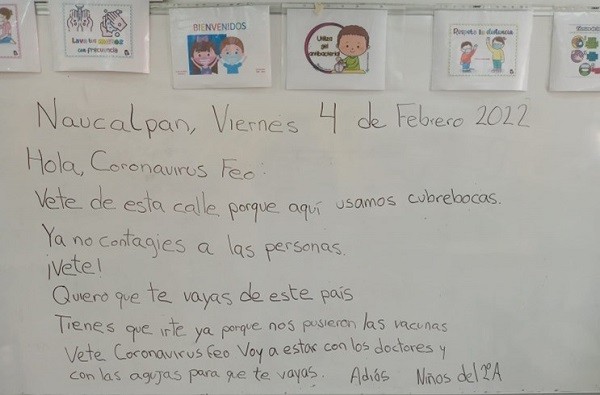 Lava tus manos
con frecuencia
BIENVENIDOS
Utiliza
gel
antibacterial
Respeta tu distancia
Naucalpan, Viernes 4 de Febrero 2022
Hola, Coronavirus Feo:
Vete de esta calle porque aquí usamos cubrebocas.
Ya no contagies a las personas.
¡Vete!
Quiero que te vayas de este país
Tienes que irte ya porque nos pusieron las vacunas
Vete Coronavirus Feo Voy a estar con los doctores y
con las agujas para que te vayas. Adiós Niños del 2ºA